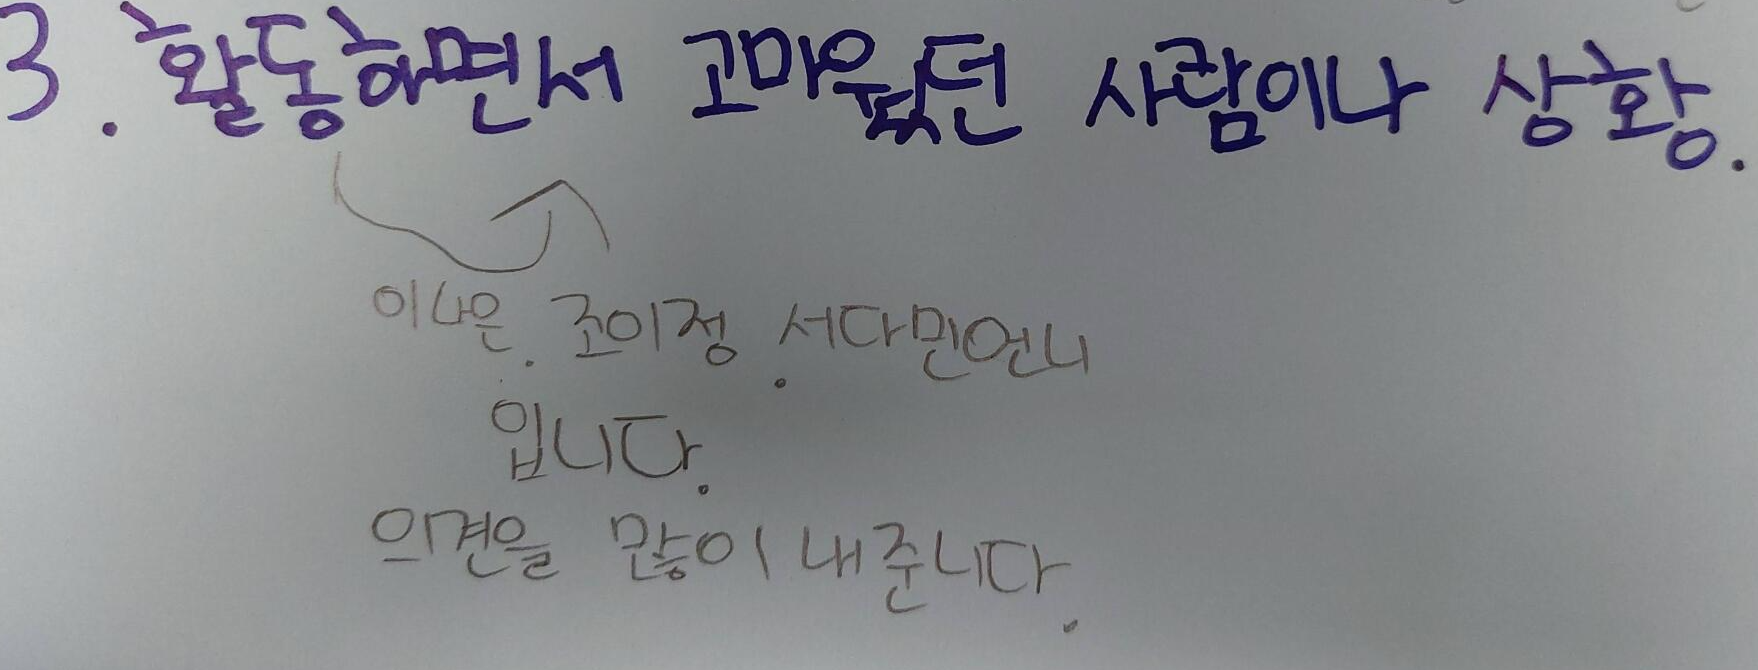 3. 활동하면서 고마웠던 사람이나 상황.
이나은. 조이정. 서다민언니
입니다.
의견을 많이 내준니다.